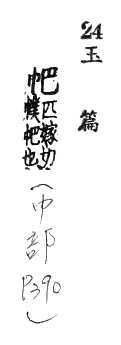 24 玉篇
帊匹嫁切幞帊也(巾部P390)